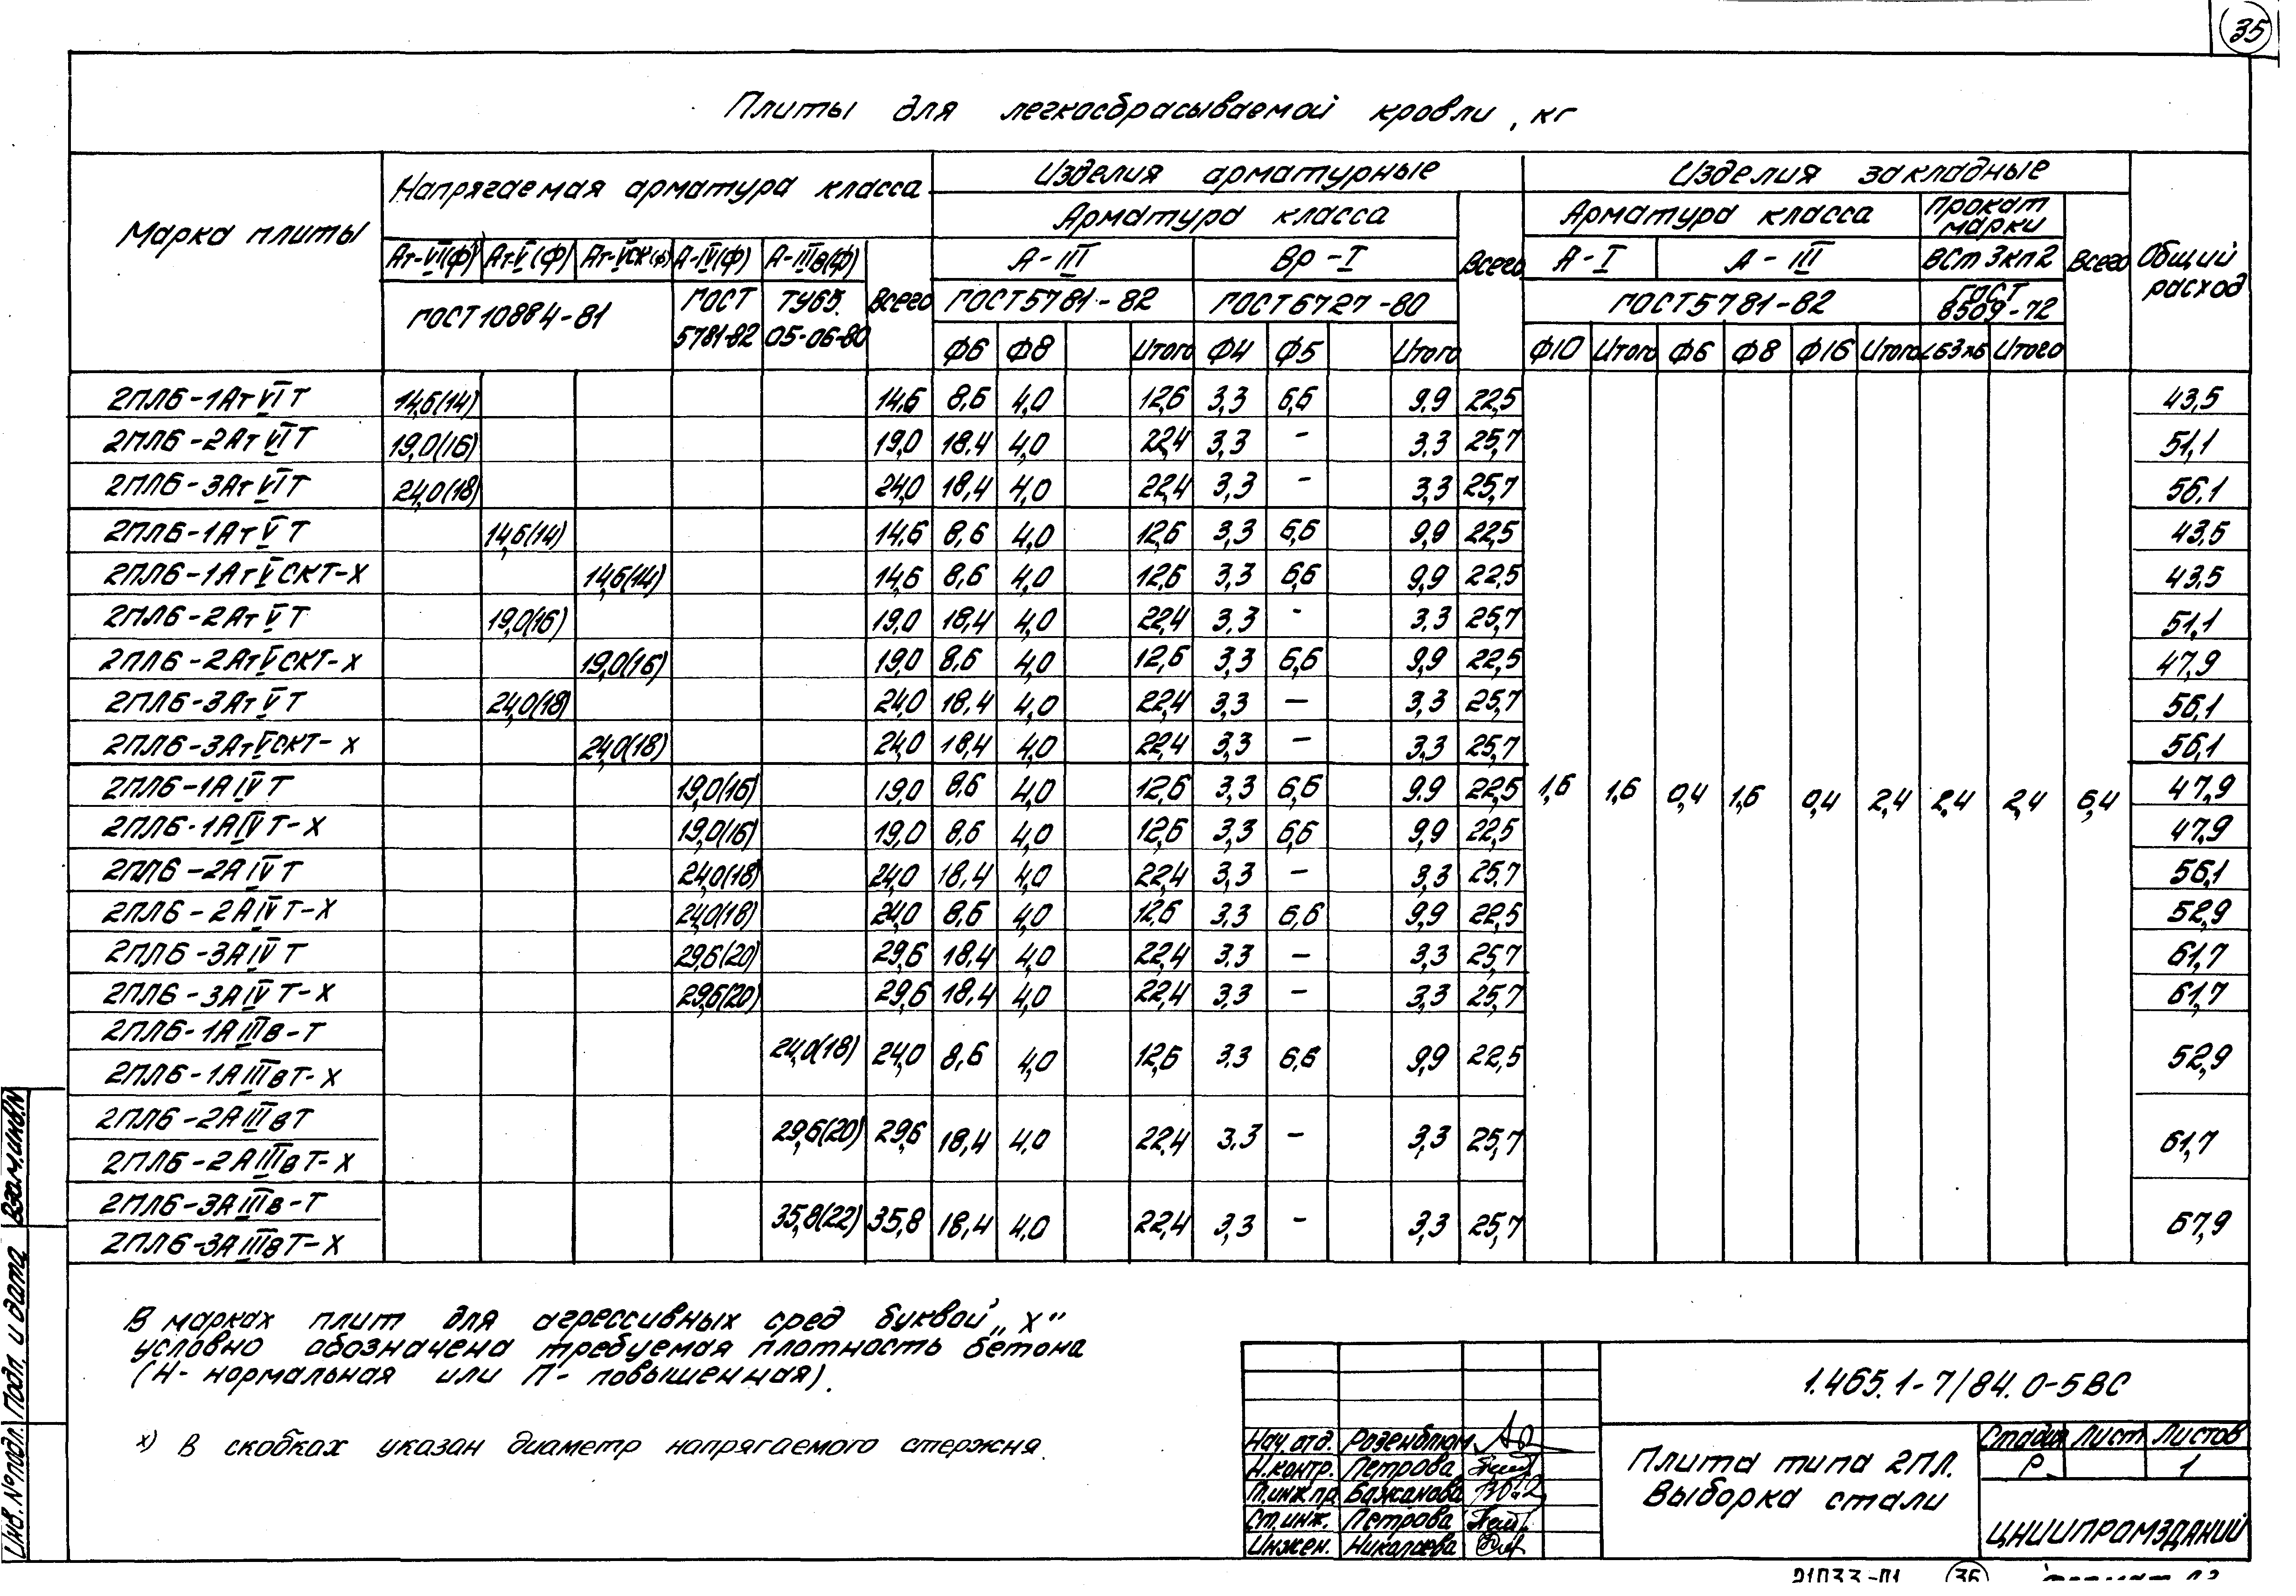 35
Плиты для легкосбрасываемой кровли, кг
Марка плиты
Напрягаемая арматура класса
Изделия арматурные
Изделия закладные
Общий расход
Арматура класса
Всего
Арматура класса
Прокат марки
Всего
Ат-VII(ф) Ат-V(ф) Ат-VCK(ф) А-IV(ф) А-IIIв(ф) Всего
А-III Вр-I
А-I А-III ВСт3кп2
ГОСТ 10884-81 ГОСТ 5781-82 ТУ65. 05-06-80
ГОСТ 5781-82 ГОСТ 6727-80
ГОСТ 5781-82 ГОСТ 8509-72
Ф6 Ф8 Итого Ф4 Ф5 Итого Ф10 Итого Ф6 Ф8 Ф16 Итого L63х6 Итого
2ПЛ6-1АтVIТ 14,6(14) 14,6 8,6 4,0 12,6 3,3 6,6 9,9 22,5 43,5
2ПЛ6-2АтVIТ 19,0(16) 19,0 18,4 4,0 22,4 3,3 - 3,3 25,7 51,1
2ПЛ6-3АтVIТ 24,0(18) 24,0 18,4 4,0 22,4 3,3 - 3,3 25,7 56,1
2ПЛ6-1АтVТ 14,6(14) 14,6 8,6 4,0 12,6 3,3 6,6 9,9 22,5 43,5
2ПЛ6-1АтVСКТ-Х 14,6(14) 14,6 8,6 4,0 12,6 3,3 6,6 9,9 22,5 43,5
2ПЛ6-2АтVТ 19,0(16) 19,0 18,4 4,0 22,4 3,3 - 3,3 25,7 51,1
2ПЛ6-2АтVСКТ-Х 19,0(16) 19,0 8,6 4,0 12,6 3,3 6,6 9,9 22,5 47,9
2ПЛ6-3АтVТ 24,0(18) 24,0 18,4 4,0 22,4 3,3 — 3,3 25,7 56,1
2ПЛ6-3АтVСКТ-Х 24,0(18) 24,0 18,4 4,0 22,4 3,3 — 3,3 25,7 56,1
2ПЛ6-1АIVТ 19,0(16) 19,0 8,6 4,0 12,6 3,3 6,6 9,9 22,5 1,6 1,6 0,4 1,6 0,4 2,4 2,4 2,4 6,4 47,9
2ПЛ6-1АIVТ-Х 19,0(16) 19,0 8,6 4,0 12,6 3,3 6,6 9,9 22,5 47,9
2ПЛ6-2АIVТ 24,0(18) 24,0 18,4 4,0 22,4 3,3 — 3,3 25,7 56,1
2ПЛ6-2АIVТ-Х 24,0(18) 24,0 8,6 4,0 12,6 3,3 6,6 9,9 22,5 52,9
2ПЛ6-3АIVТ 29,6(20) 29,6 18,4 4,0 22,4 3,3 — 3,3 25,7 61,7
2ПЛ6-3АIVТ-Х 29,6(20) 29,6 18,4 4,0 22,4 3,3 — 3,3 25,7 61,7
2ПЛ6-1АIIIв-Т
24,0(18) 24,0 8,6 4,0 12,6 3,3 6,6 9,9 22,5 52,9
2ПЛ6-1АIIIвТ-Х
2ПЛ6-2АIIIвТ
29,6(20) 29,6 18,4 4,0 22,4 3,3 — 3,3 25,7 61,7
2ПЛ6-2АIIIвТ-Х
2ПЛ6-3АIIIв-Т
35,8(22) 35,8 18,4 4,0 22,4 3,3 - 3,3 25,7 67,9
2ПЛ6-3АIIIвТ-Х
В марках плит для агрессивных сред буквой „Х"
условно обозначена требуемая плотность бетона
(Н- нормальная или П- повышенная).
х) В скобках указан диаметр напрягаемого стержня.
1.465.1-7/84.0-5ВС
Нач.отд. Розенблюм
Н.контр. Петрова
Гл.инж.пр Бажанова
Ст.инж. Петрова
Инжен. Николаева
Плита типа 2ПЛ.
Выборка стали
Стадия Лист Листов
Р 1
ЦНИИПРОМЗДАНИЙ
Инв.№подл. Подп. и дата Взам.инв.N
21033-01 36